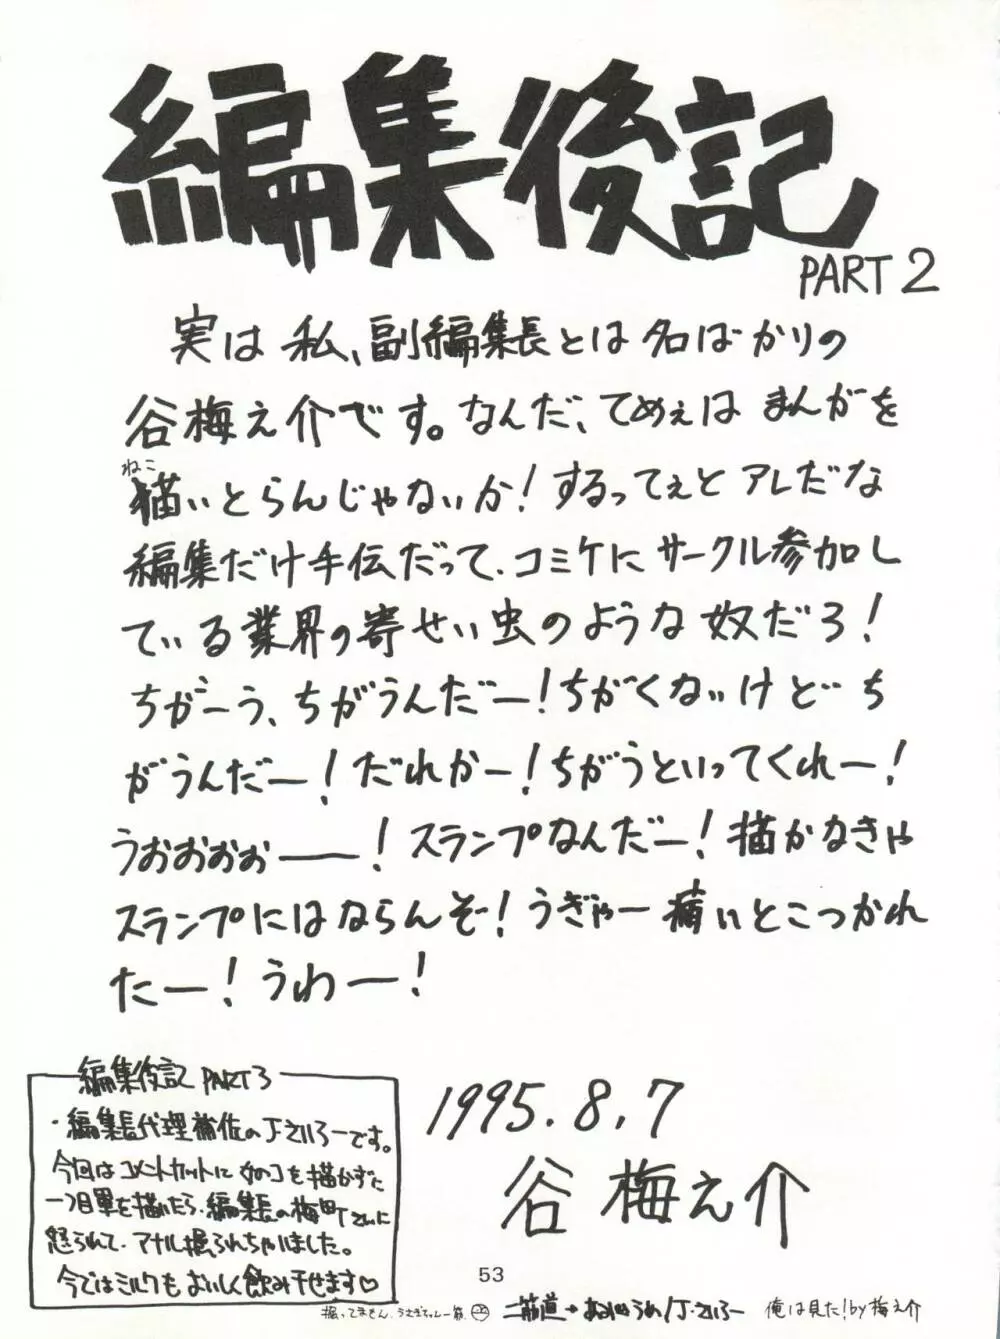 編集後記
PART 2
実は私、副編集長とは名ばかりの
谷梅之介です。なんだ、てめぇはまんがを
ねこ
描いとらんじゃないか!するってぇとアレだな
編集だけ手伝だって、コミケにサークル参加し
ている業界の寄せい虫のような奴だろ!
ちがーう、ちがうんだー!ちがくないけどち
がうんだー!だれかー!ちがうといってくれー!
うおおおぉ——!スランプなんだー!描かなきゃ
スランプにはならんぞ!うぎゃー痛いとこつかれ
たー!うわー!
1995.8.7
谷梅之介
編集後記 PART3
・編集長代理補佐のJ・さいろーです。
今回はコメントカットに女のコを描かずに
一つ目軍を描いたら、編集長の梅田Tさんに
怒られて、アナル掘られちゃいました。
今ではミルクもおいしく飲み干せます♡
53
掘ってません。うさぎちゃん一筋。
二筋道→ /J・さいろー
俺は見た!by梅之介